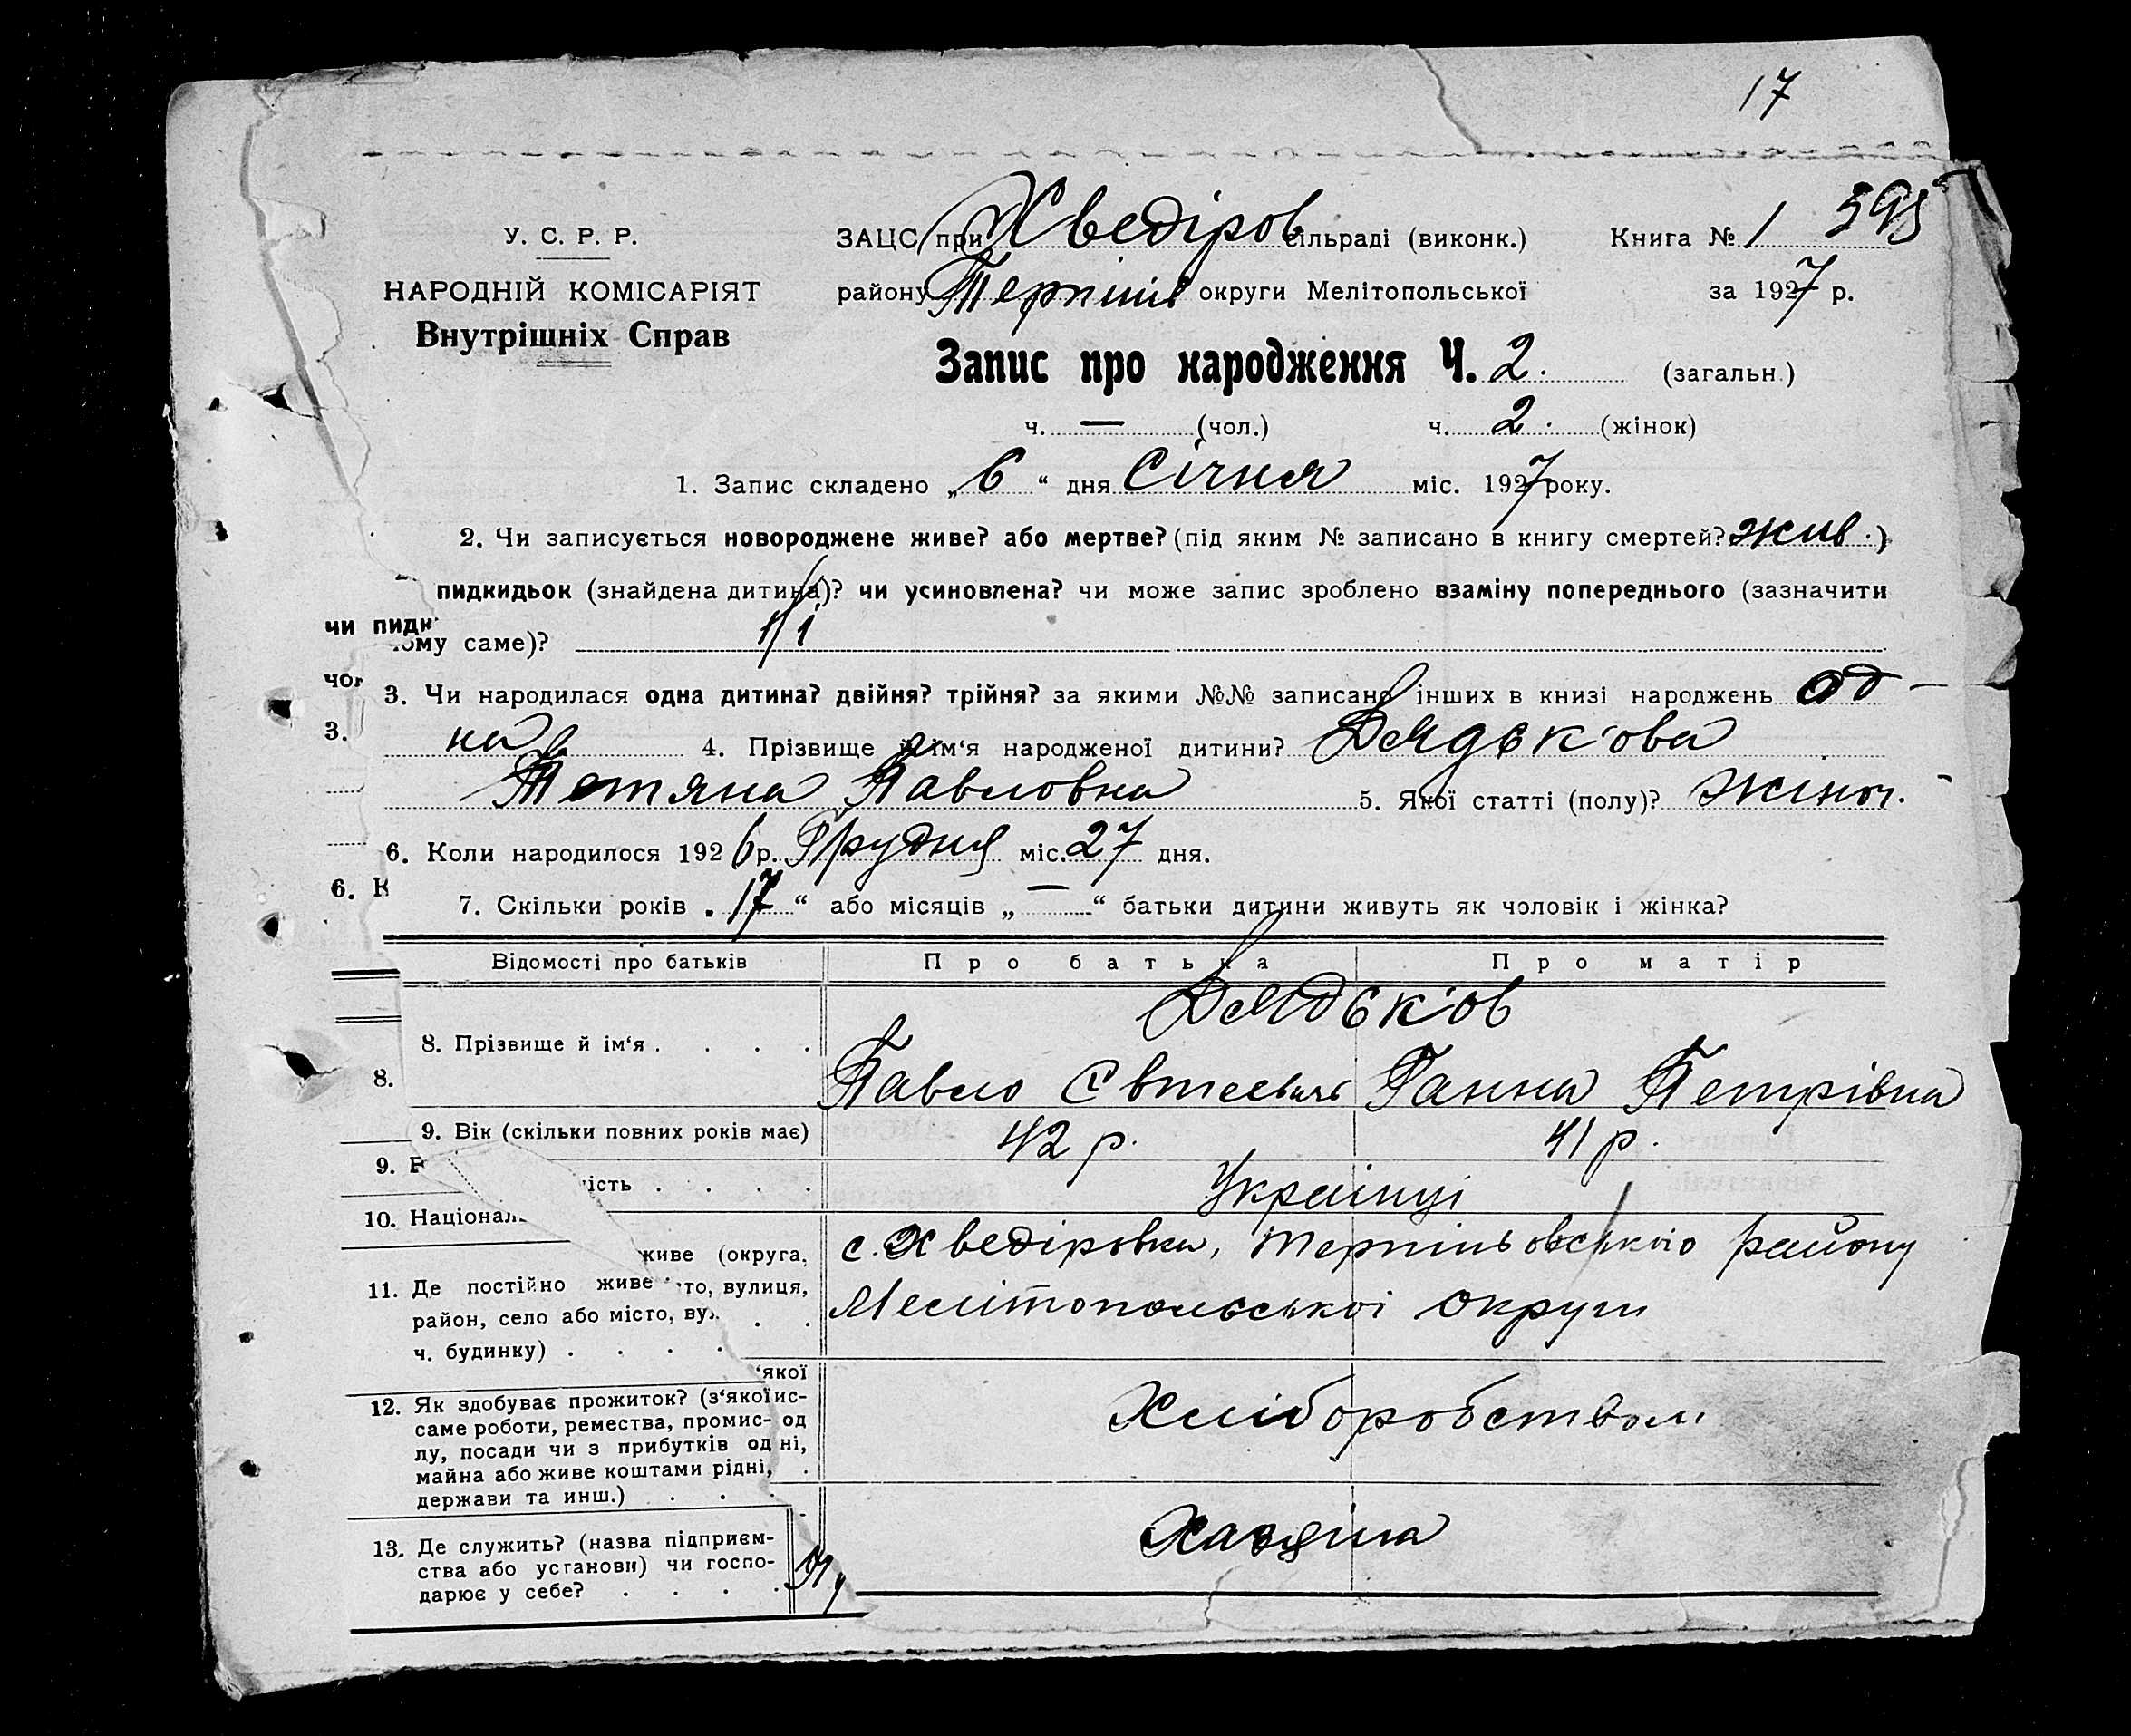 17
У. С. Р. Р.
НАРОДНІЙ КОМІСАРІЯТ
Внутрішніх Справ
ЗАЦС при Хведіров сільраді (виконк.) Книга № 1 595
району Терпінів округи Мелітопольської за 1927 р.
Запис про народження Ч. 2. (загальн.)
ч. — (чол.) ч. 2. (жінок)
1. Запис складено „6“ дня Січня міс. 1927 року.
2. Чи записується новороджене живе? або мертве? (під яким № записано в книгу смертей? жив.)
пидкидьок (знайдена дитина)? чи усиновлена? чи може запис зроблено взаміну попереднього (зазначити
чи пидк
чому саме)? Ні
чог
3. Чи народилася одна дитина? двійня? трійня? за якими №№ записано інших в книзі народжень од-
3.
на 4. Прізвище й ім‘я народженої дитини? Дядькова
Тетяна Павловна 5. Якої статті (полу)? жіноч.
6. Коли народилося 1926 р. Грудня міс. 27 дня.
6. К
7. Скільки років „17“ або місяців „—“ батьки дитини живуть як чоловік і жінка?
Відомості про батьків Про батька Про матір
8. Прізвище й ім‘я . . . . Дядьков
8. Павло Ганна Петрівна
9. Вік (скільки повних років має) 42 р. 41 р.
9. В
ість . . . . Українці
10. Націонал
живе (округа, с. Хведіровка, Терпіньовського району
11. Де постійно живе то, вулиця,
район, село або місто, вул. . . Мелітопольської округи
ч. будинку) . . . .
‘якої
12. Як здобуває прожиток? (з‘якої ис-
саме роботи, ремества, промис- од Хліборобством
лу, посади чи з прибутків од ні,
майна або живе коштами рідні, .
держави та инш.) . . .
13. Де служить? (назва підприєм- Хазяіна
ства або установи) чи госпо-
дарює у себе? . . . .